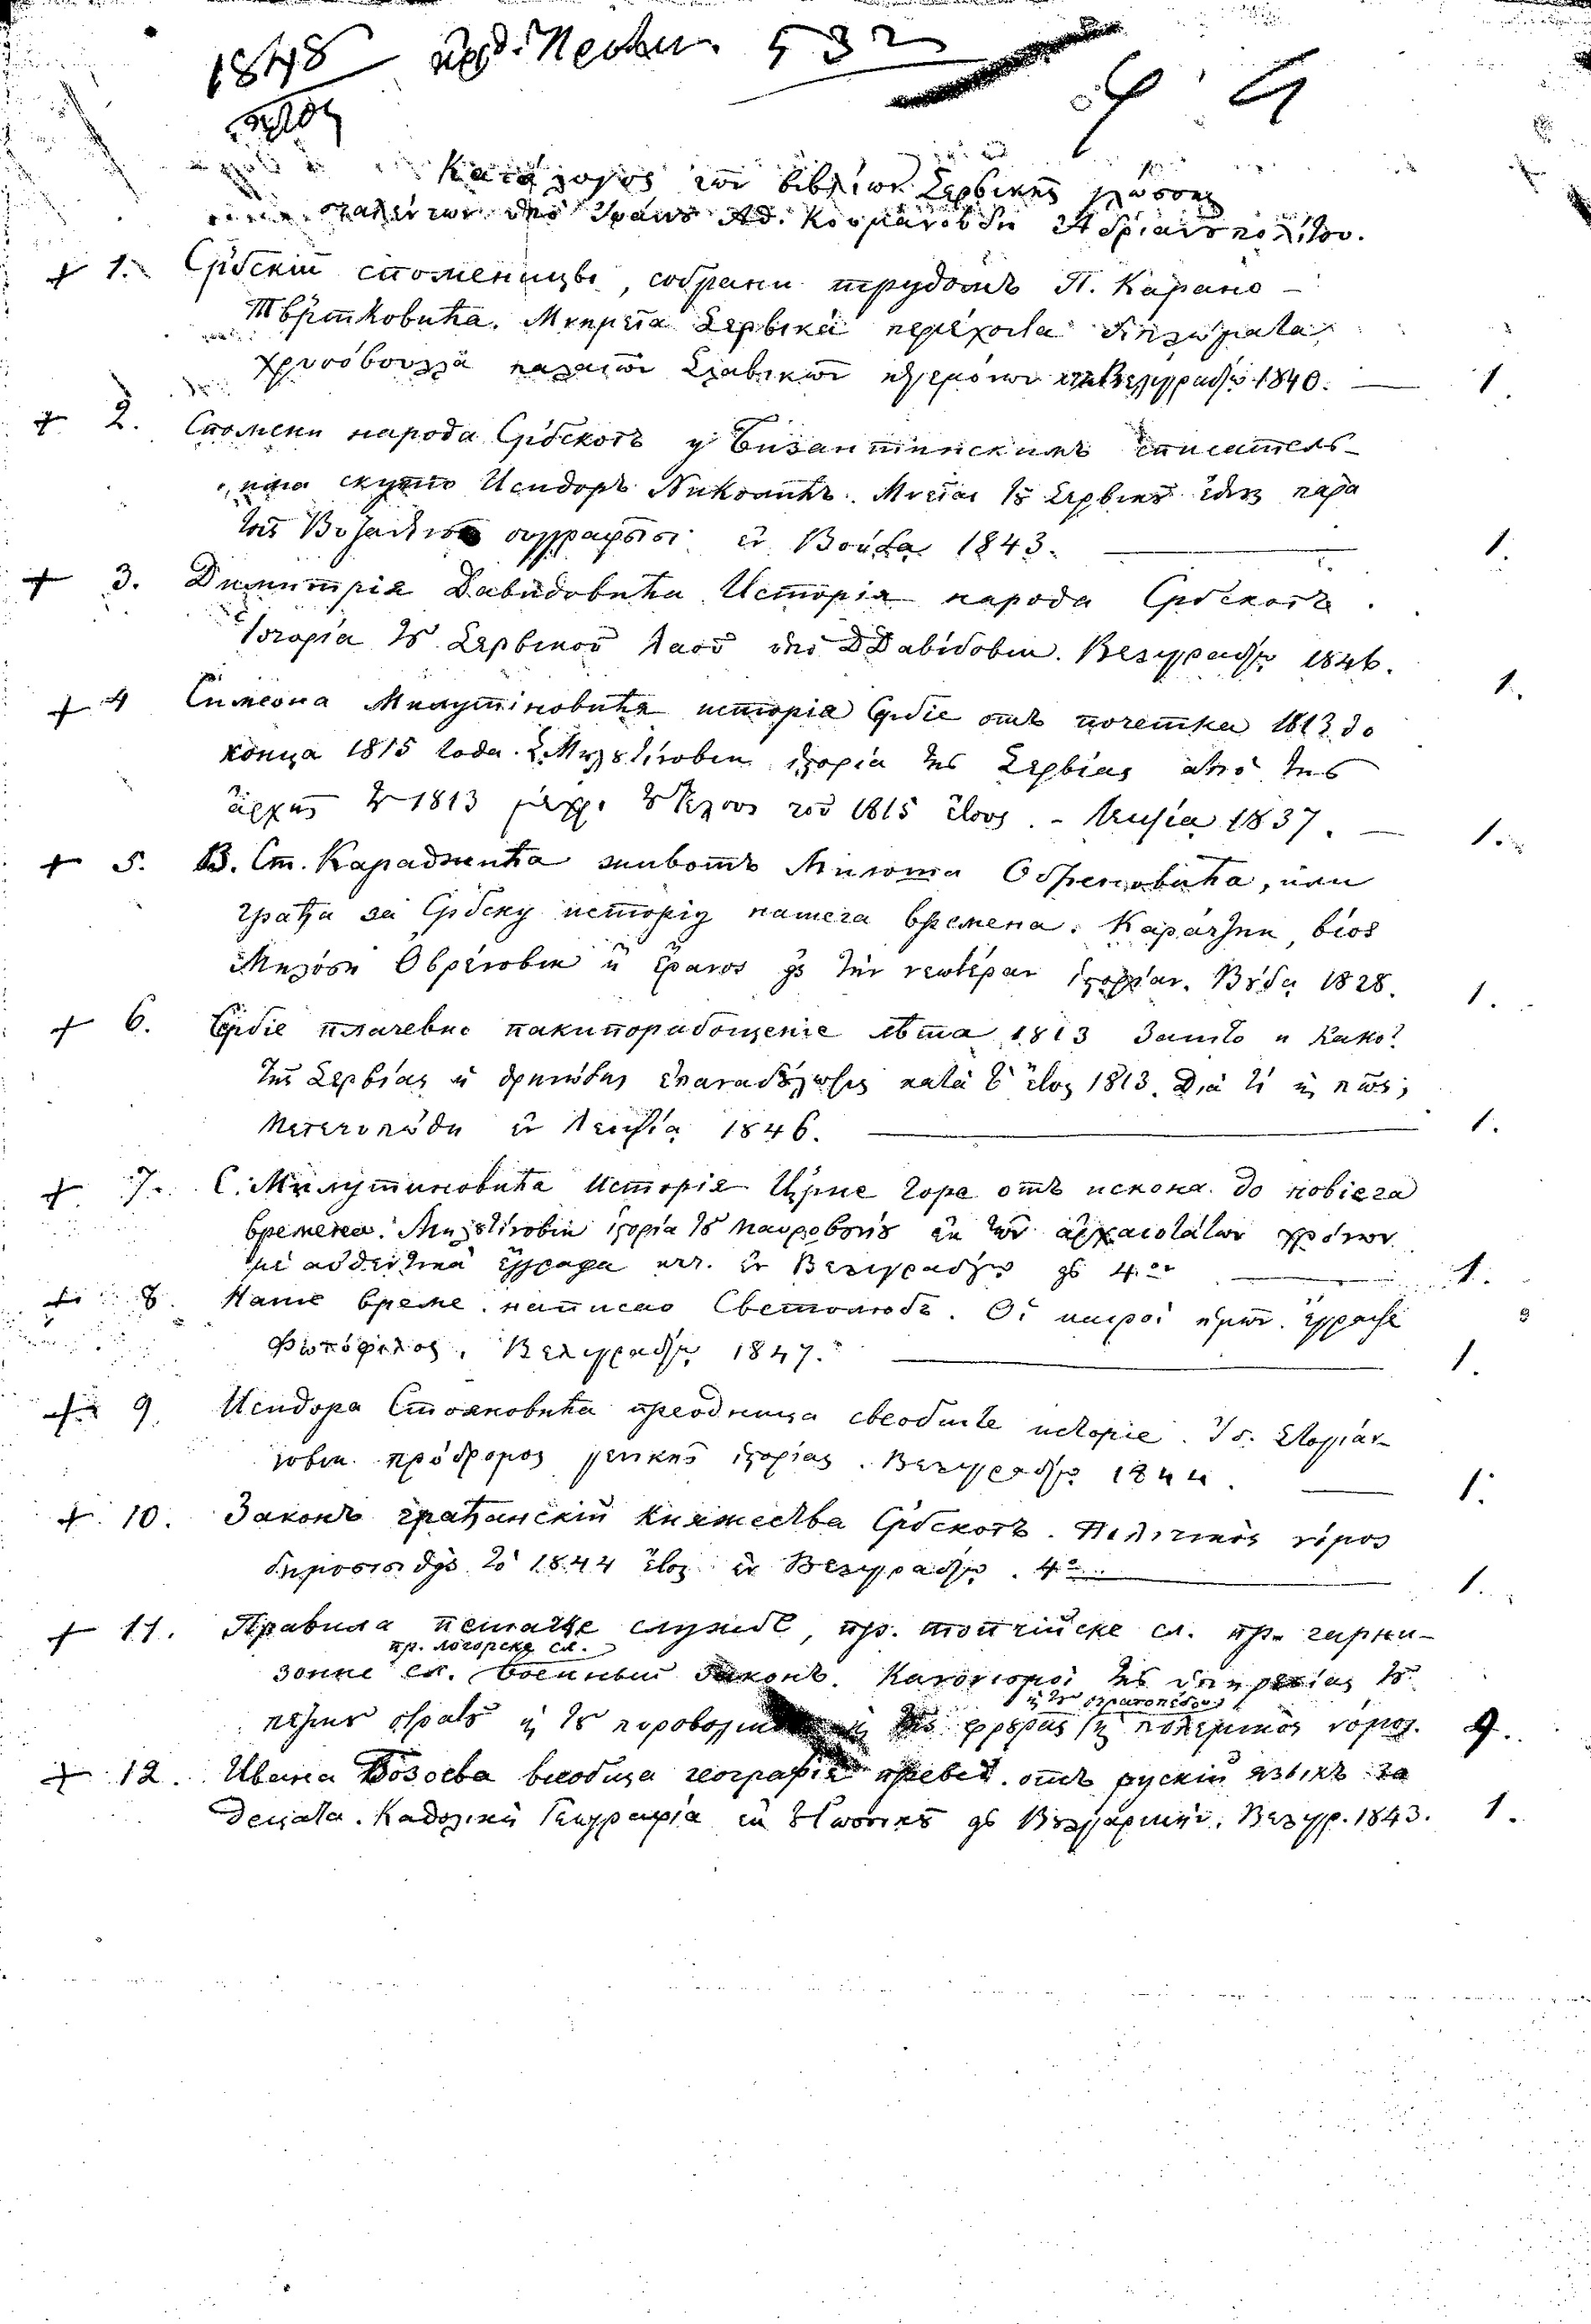 1848 532
Κατάλογος τῶν βιβλίων Σερβικῆς γλώσσης
σταλέντων ὑπὸ Ἰωάννου Ἀδ. Κουμάνουδη Ἀδριανουπολίτου.
+ 1. Србскіи споменицы, собрани трудомъ П. Карано-
Твртковића. Μνημεῖα Σερβικὰ περιέχοντα διπλώματα,
χρυσόβουλλα παλαιῶν Σλαβικῶν ἡγεμόνων ἐν Βελιγραδίῳ 1840. — 1.
+ 2. Спомени народа Србскогъ у Византинскимъ списатель-
има скупіо Исидоръ Николић. Μνεῖαι τȣ Σερβικȣ ἔθνȣς παρὰ
τοῖς Βυζαντινοῖς συγγραφεῦσι ἐν Βούδᾳ 1843. — 1.
+ 3. Димитрія Давидовића Исторія народа Србскогъ.
Ἱστορία τȣ Σερβικοῦ λαοῦ ὑπὸ Δ Δαβίδοβικ. Βελιγραδίῳ 1846. 1.
+ 4 Симеона Милутиновића исторія Србіе отъ почетка 1813 до
конца 1815 года. Σ. Μιλȣτίνοβικ ἱστορία τῆς Σερβίας ἀπὸ τῆς
ἀρχῆς τȣ 1813 μέχρι τȣ τέλους τοῦ 1815 ἔτους. - Λειψίᾳ 1837. — 1.
+ 5. В. Ст. Караджића животъ Милоша Обреновића, или
грађа за Србску исторію нашега времена. Καράτζικ, βίος
Μιλόση Ὀβρένοβικ ἢ ἔρανος εἰς τὴν νεωτέραν ἱστορίαν. Βȣδᾳ 1828. 1.
+ 6. Србіе плачевно пакипорабощеніе лѣта 1813 Зашто и Како?
Τῆς Σερβίας ἡ θρηνώδης ἐπαναδȣλωσις κατὰ τὸ ἔτος 1813. Διὰ τί καὶ πῶς;
ἐν Λειψίᾳ 1846. — 1.
+ 7. С. Милутиновића Исторія Црне Горе отъ искона до новіега
времена. Μιλȣτίνοβικ ἱστορία τȣ Μαυροβουνίȣ ἐκ τῶν ἀρχαιοτάτων χρόνων
μὲ αὐθεντικὰ ἔγγραφα κτλ. ἐν Βελιγραδίῳ εἰς 4.ον — 1.
+ 8. Наше време. написао Светолюбъ. Οἱ καιροὶ ἡμῶν. ἔγραψε
Φωτόφιλος. Βελιγραδίῳ 1847. — 1.
+ 9. Исидора Стояновића преодница свеобште исторіе. Ἰσ. Στογιάν-
νοβικ πρόδρομος γενικῆς ἱστορίας. Βελιγραδίῳ 1844. — 1.
+ 10. Законъ грађанскій Княжества Србскогъ. Πολιτικὸς νόμος
δημοσιευθεὶς τὸ 1844 ἔτος ἐν Βελιγραδίῳ. 4ον — 1.
+ 11. Правила пешачке службе, пр. топчійске сл. пр. гарни-
пр. логорске сл.
зонне сл. военный законъ. Κανονισμοὶ τῆς ὑπηρεσίας τȣ
καὶ τȣ στρατοπέδου
πεζικȣ στρατȣ καὶ τȣ πυροβολικοῦ καὶ τῆς φρȣρᾶς καὶ πολεμικὸς νόμος. 9.
+ 12. Ивана Бозоева всеобща географія превед. отъ рускій языкъ за
децата. Καθολικὴ Γεωγραφία ἐκ τȣ Ρωσσικȣ εἰς Βȣλγαρικήν. Βελιγρ. 1843. 1.